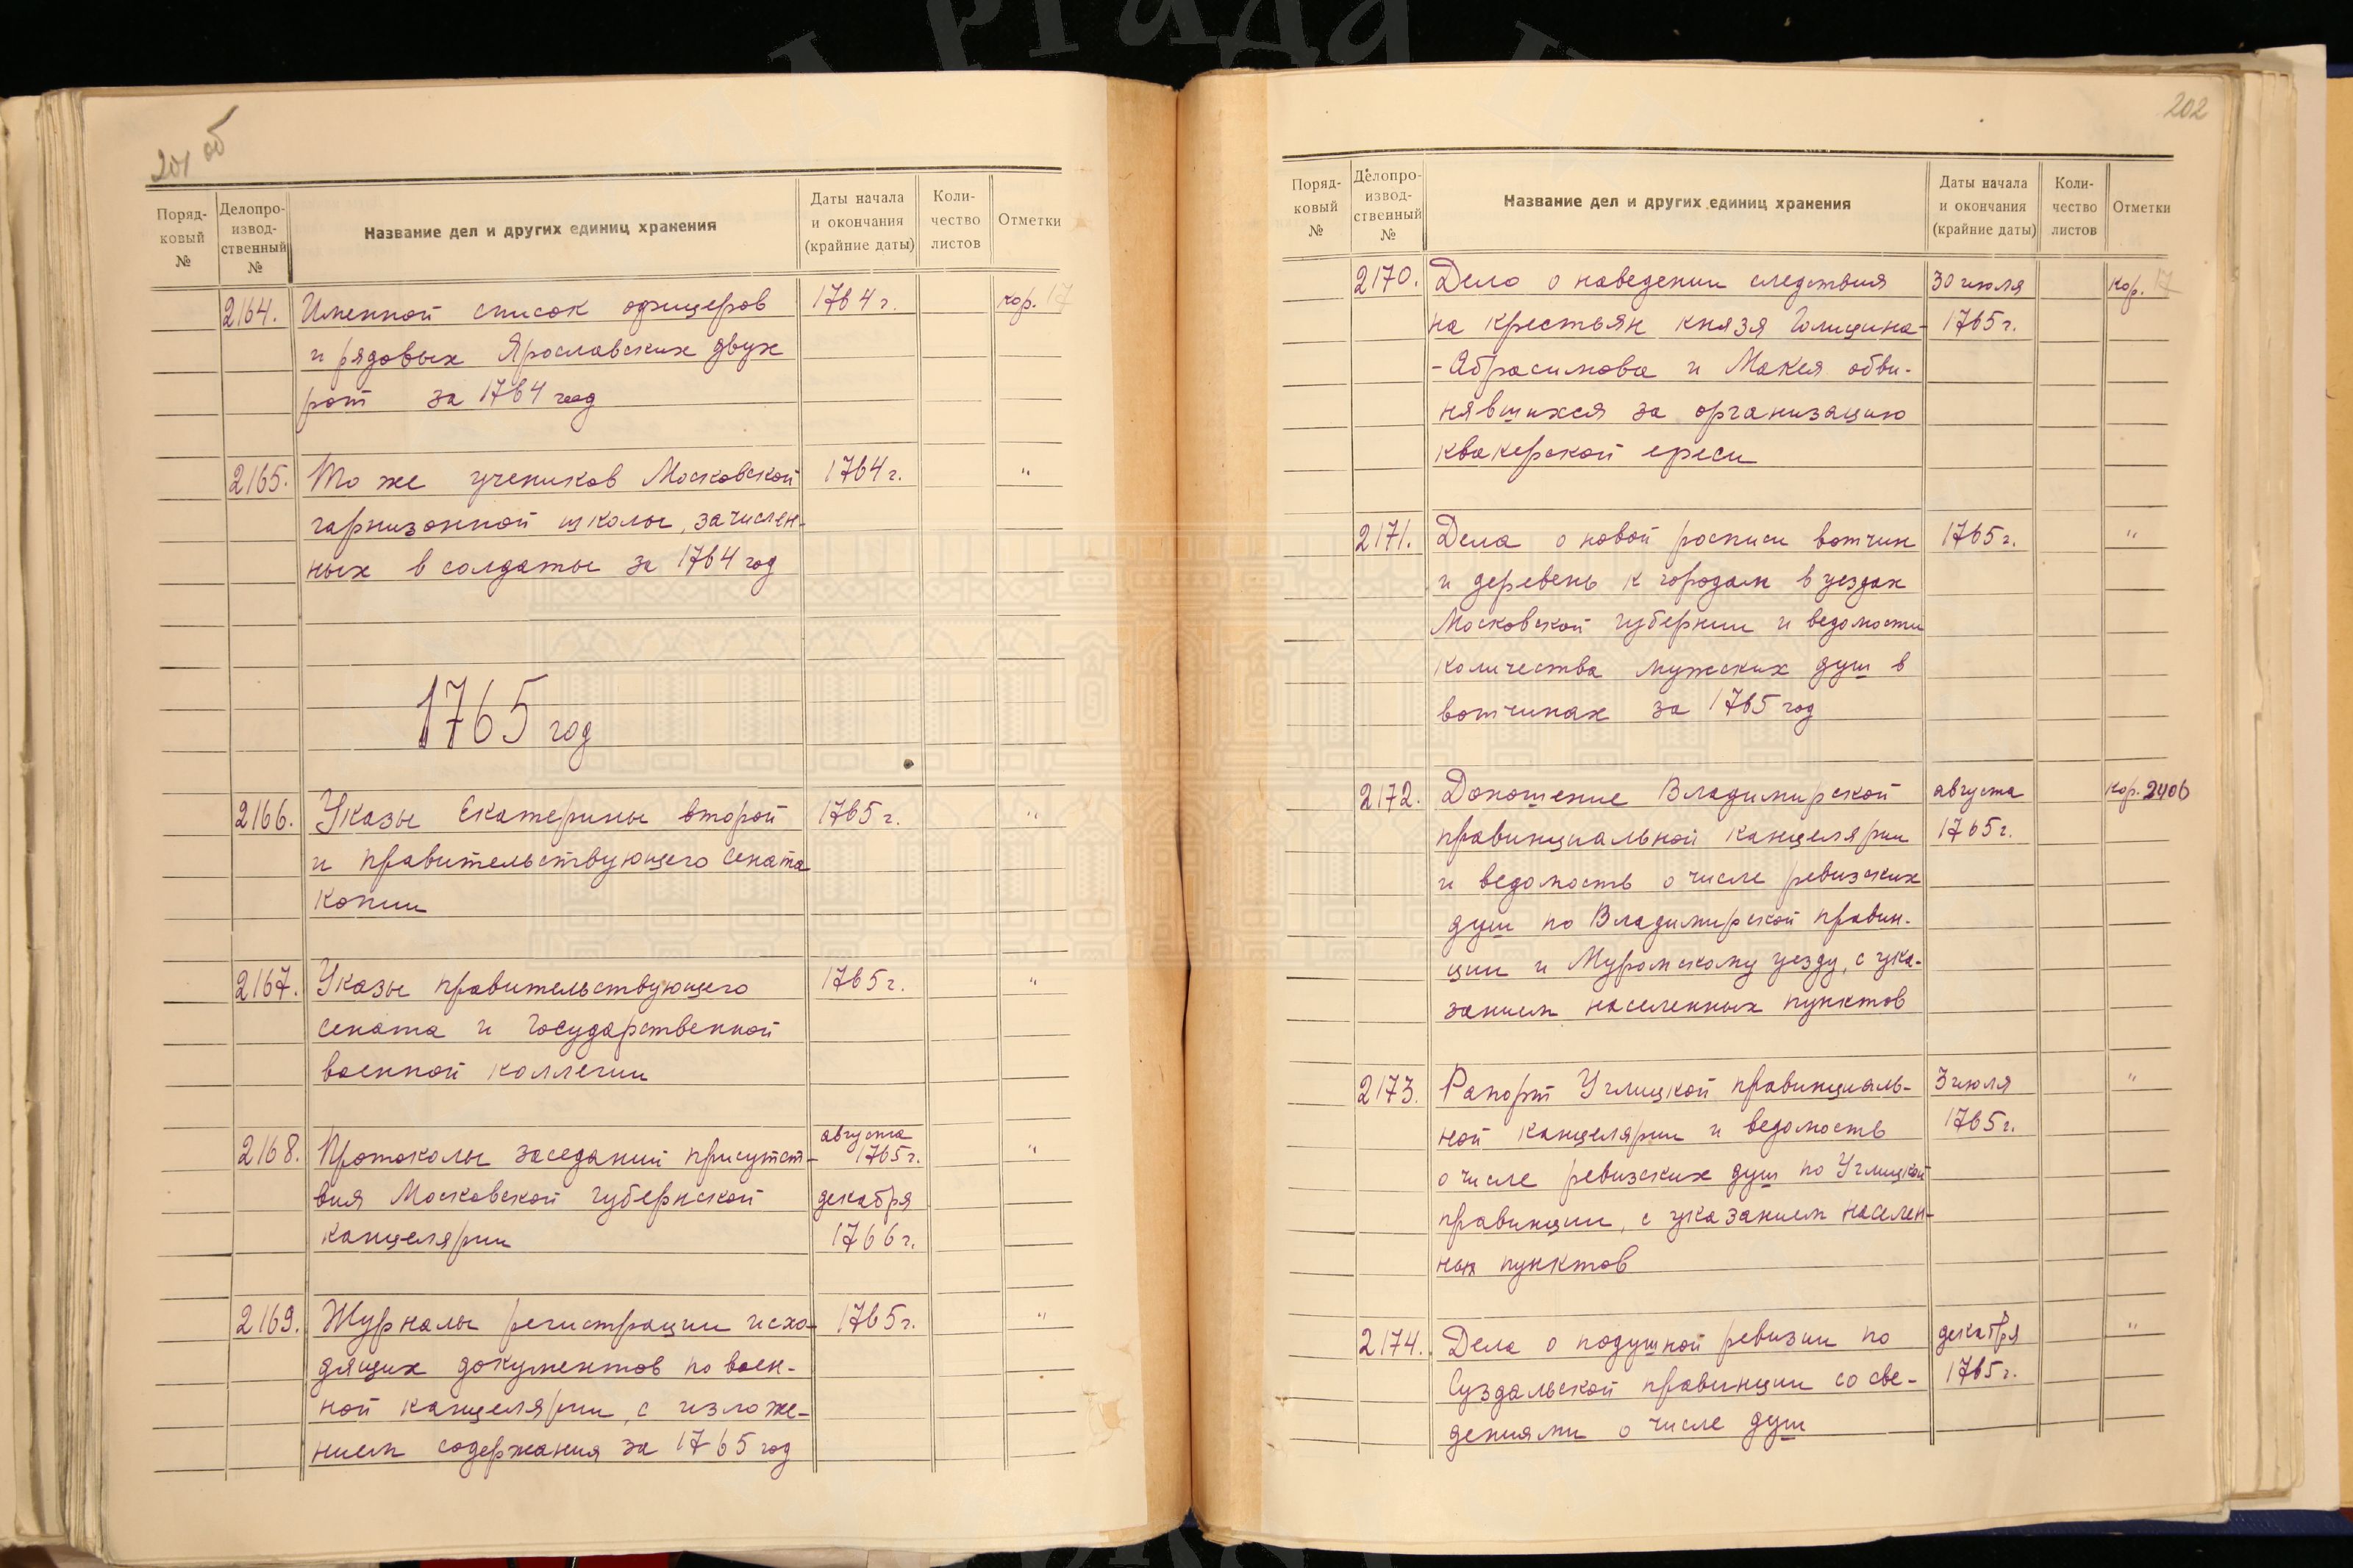 201 об
Поряд-
ковый
№
Делопро-
извод-
ственный
№
Название дел и других единиц хранения
Даты начала
и окончания
(крайние даты)
Коли-
чество
листов
Отметки
2164. Именной список офицеров 1764 г. кор. 17
и рядовых Ярославских двух
рот за 1764 год
2165. То же учеников Московской 1764 г. "
гарнизонной школы, зачислен-
ных в солдаты за 1764 год
1765 год
2166. Указы Екатерины второй 1765 г. "
и правительствующего сената
копии
2167. Указы правительствующего 1765 г. "
сената и Государственной
военной коллегии
августа
2168. Протоколы заседаний присутст- 1765 г. "
вия Московской губернской декабря
канцелярии 1766 г.
2169. Журналы регистрации исхо- 1765 г. "
дящих документов по воен-
ной канцелярии, с изложе-
нием содержания за 1765 год
202
Поряд-
ковый
№
Делопро-
извод-
ственный
№
Название дел и других единиц хранения
Даты начала
и окончания
(крайние даты)
Коли-
чество
листов
Отметки
2170. Дело о наведении следствия 30 июля кор. 17
на крестьян князя Голицина- 1765 г.
- Абрасимова и Макея обви-
нявшихся за организацию
квакерской ереси
2171. Дела о новой росписи вотчин 1765 г. "
и деревень к городам в уездах
Московской губернии и ведомости
количества мужских душ в
вотчинах за 1765 год
2172. Доношение Владимирской августа кор. 2406
правинциальной канцелярии 1765 г.
и ведомость о числе ревизских
душ по Владимирской правин-
ции и Муромскому уезду, с ука-
занием населенных пунктов
2173. Рапорт Углицкой правинциаль- 3 июля "
ной канцелярии и ведомость 1765 г.
о числе ревизских душ по Углицкой
правинции, с указанием населен-
ных пунктов
2174. Дела о подушной ревизии по декабря "
Суздальской правинции со све- 1765 г.
дениями о числе душ